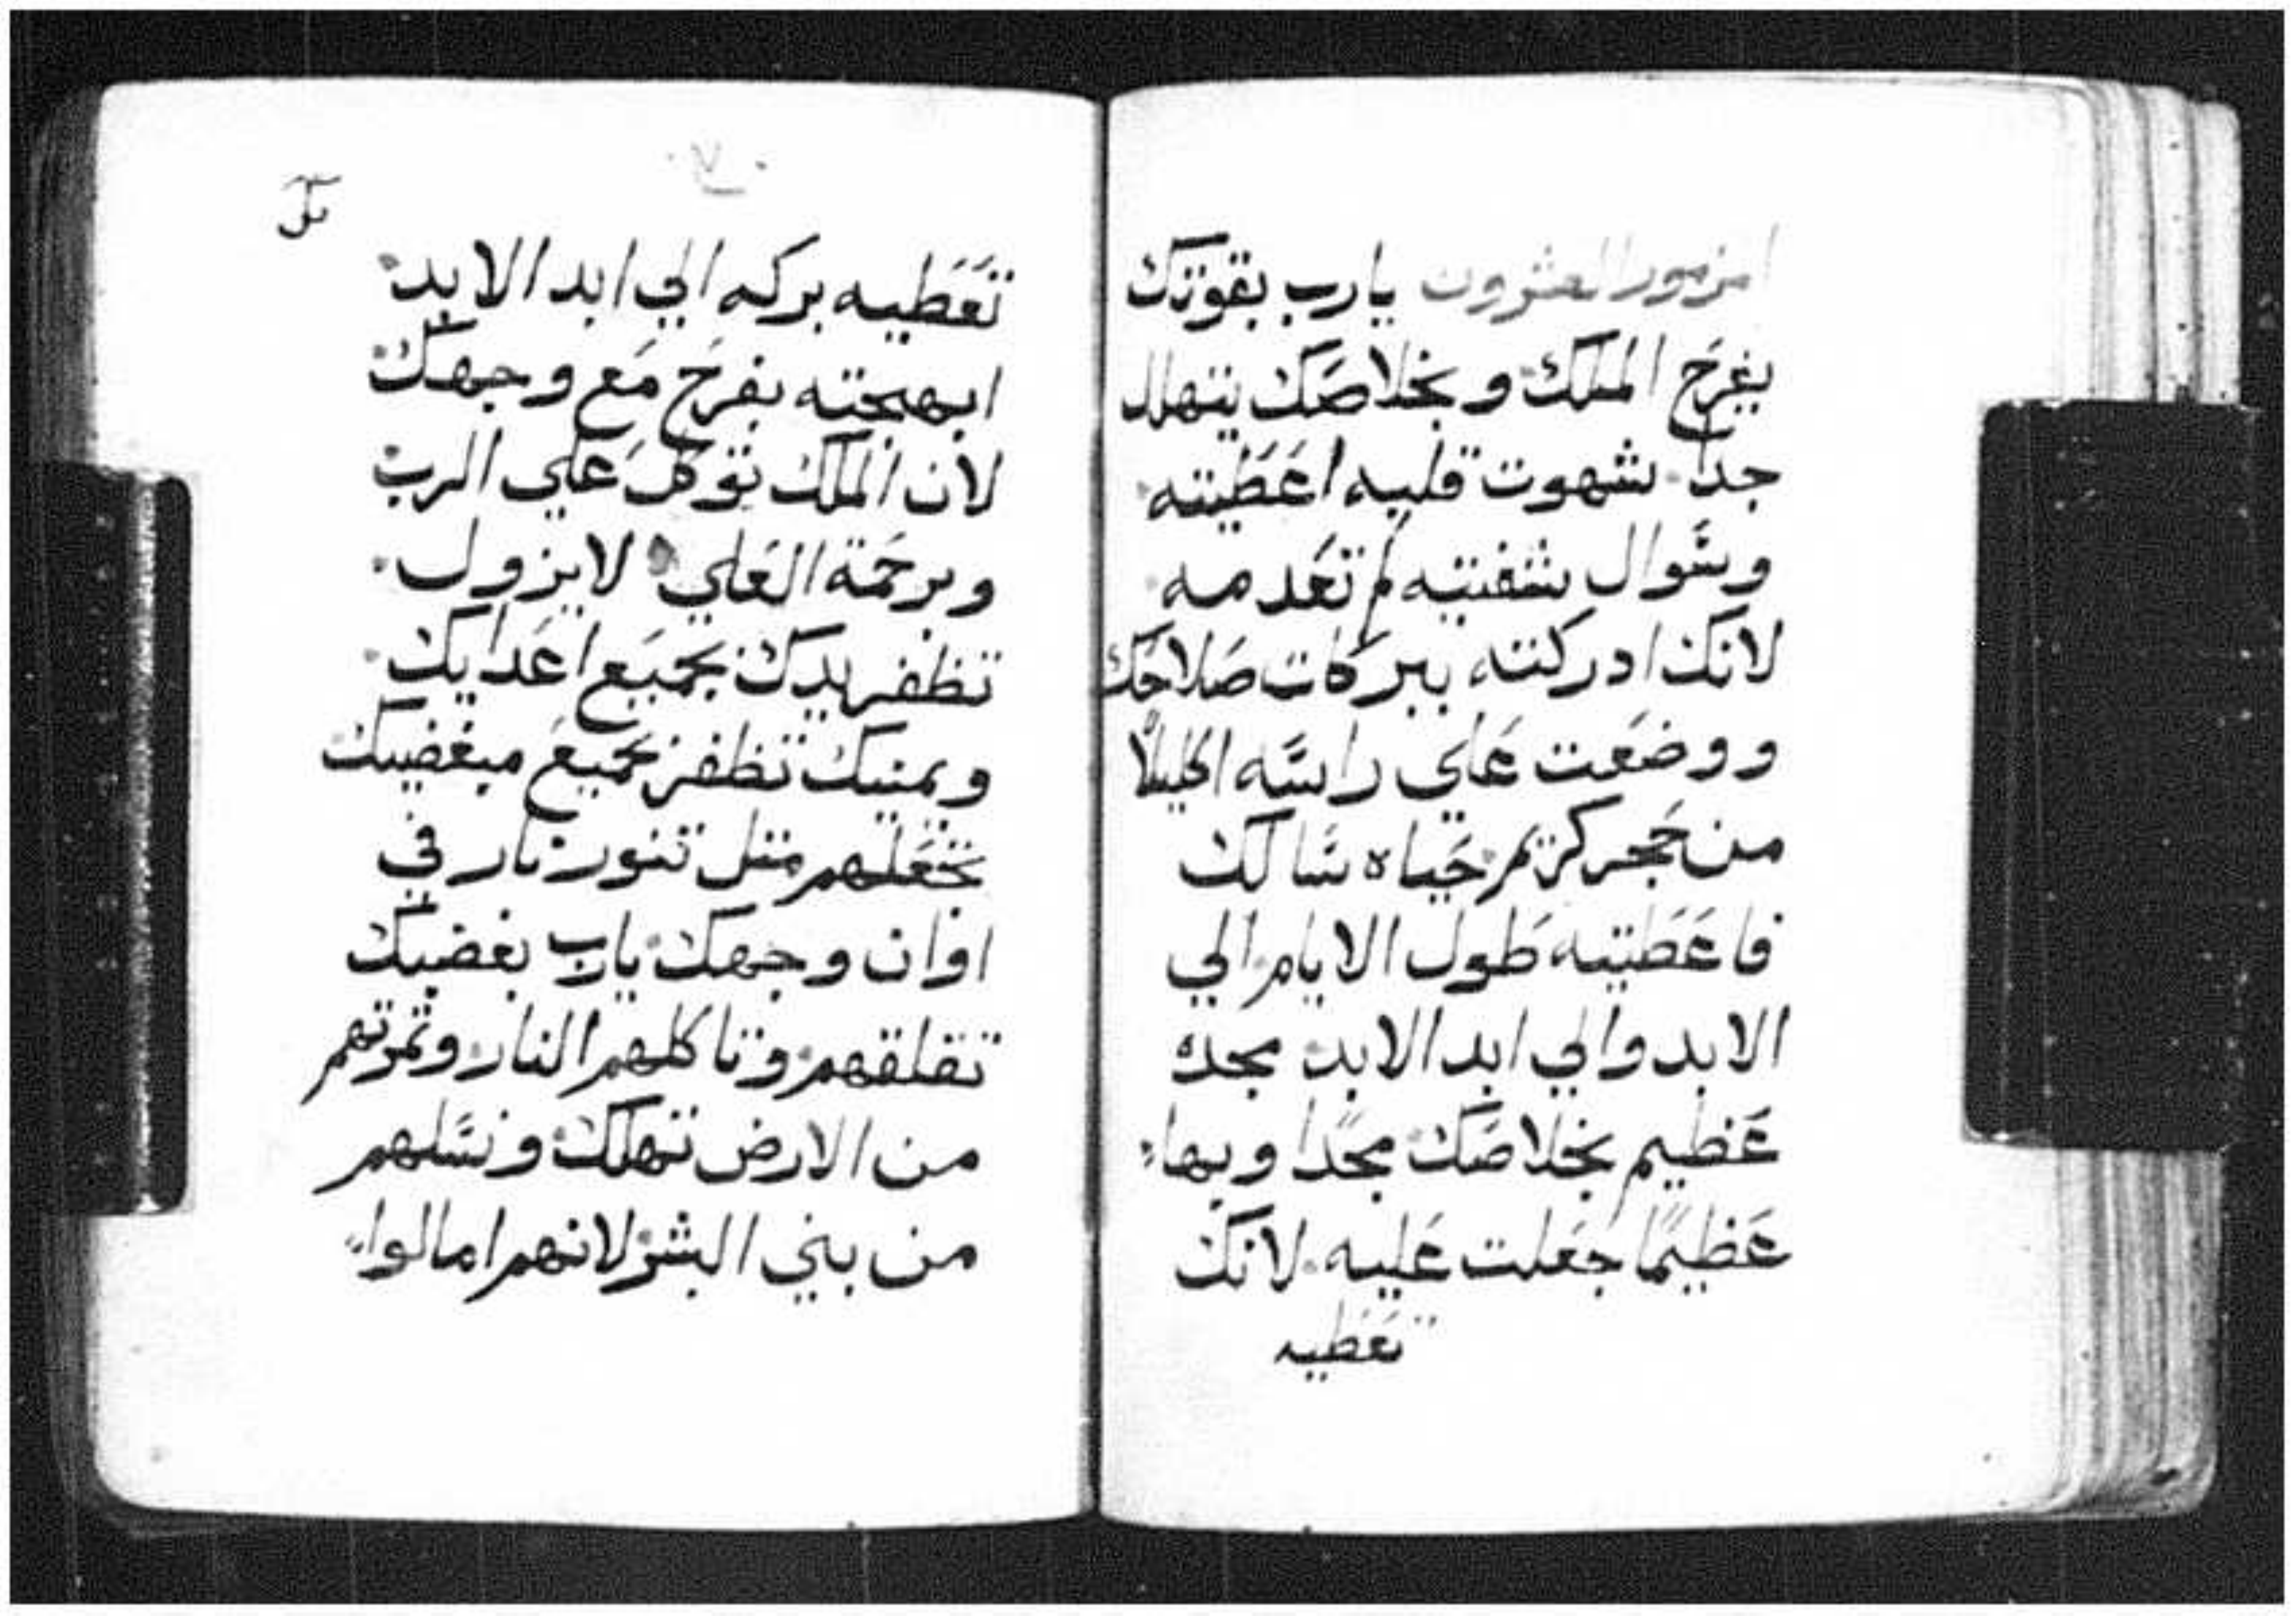 المزمور العشرون يارب بقوتك
يفرح الملك وبخلاصك يتهلل
جدا. شهوت قلبه اعطيته
وسوال شفتيه لم تعدمه
لانك ادركته ببركات صلاحك
ووضعت علي راسه اكليلاً
من حجر كريم حياه سالك
فاعطيته طول الايام الي
الابد والي ابد الابد مجده
عظيم بخلاصك مجدا وبهاء
عظيمًا جعلت عليه. لانك
تعطيه
٧٠
تعطيه بركه الي ابد الابد
ابهجته بفرح مع وجهك
لان الملك توكل علي الرب
وبرحمة العلي لا يزول.
تظفر يدك بجميع اعدايك
ويمنيك تظفر بجميع مبغضيك
تجعلهم مثل تنور نار في
اوان وجهك يارب بغضبك
تقلقهم وتاكلهم النار وثمرتهم
من الارض تهلك ونسلهم
من بني البشر لانهم امالوا